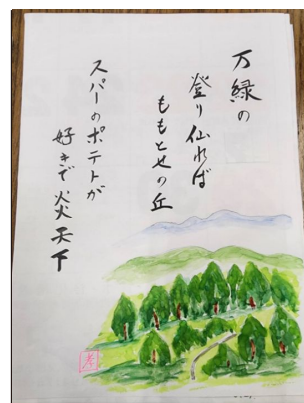 万緑の
登り仙れば
ももとせの丘
スパーのポテトが
好きで炎天下
孝